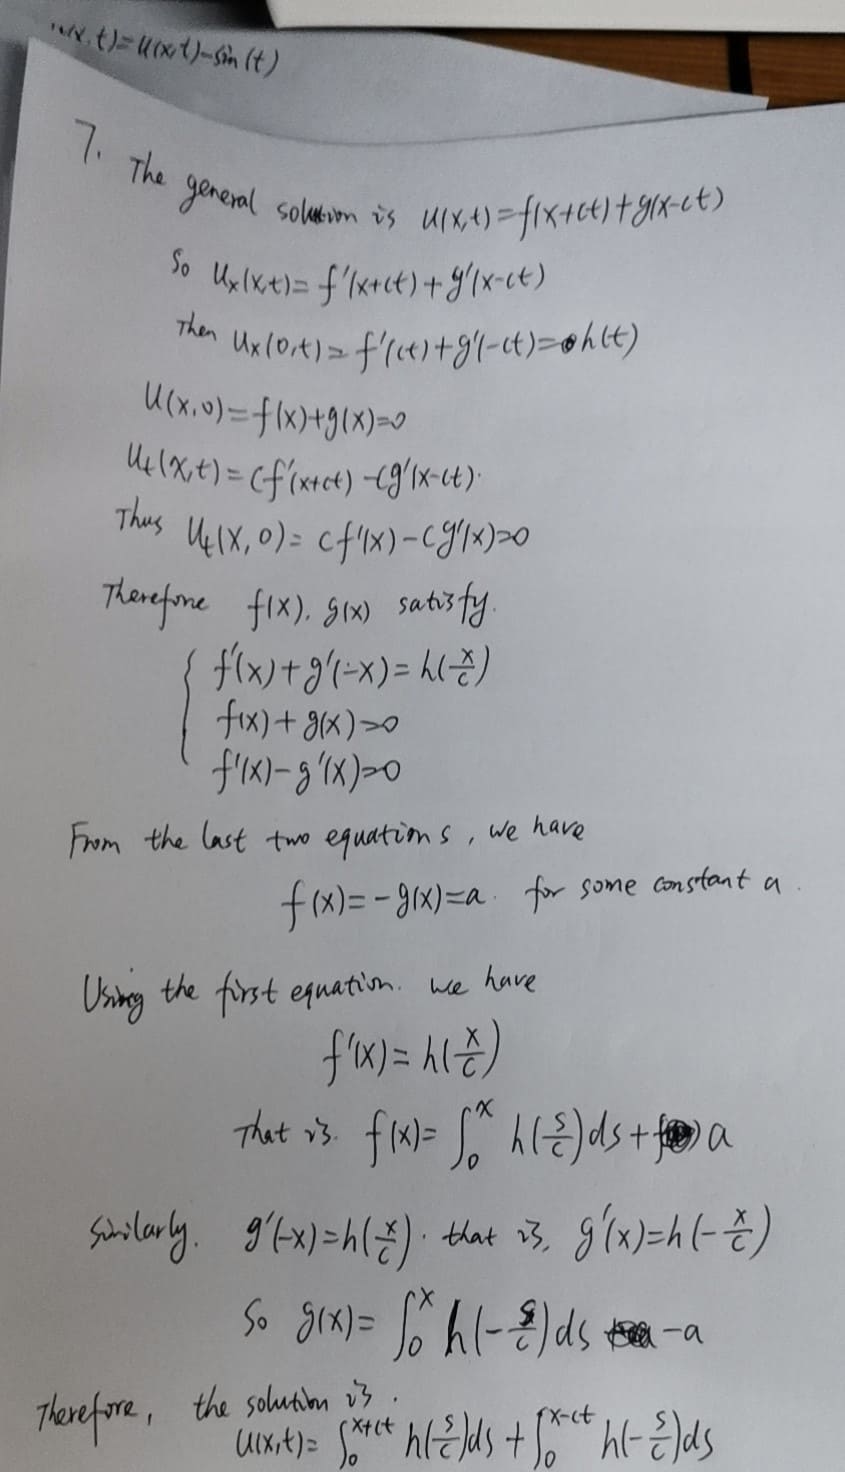 (x,t)=u(x,t)-sin(t)
7. The general solution is u(x,t)=f(x+ct)+g(x-ct)
So uₓ(x,t)=f'(x+ct)+g'(x-ct)
Then uₓ(0,t)=f'(ct)+g'(-ct)=h(t)
u(x,0)=f(x)+g(x)=0
uₜ(x,t)=cf'(x+ct)-cg'(x-ct).
Thus uₜ(x,0)=cf'(x)-cg'(x)=0
Therefore f(x), g(x) satisfy.
{ f'(x)+g'(-x)=h(x/c)
f(x)+g(x)=0
f'(x)-g'(x)=0
From the last two equations, we have
f(x)=-g(x)=a. for some constant a.
Using the first equation. we have
f'(x)=h(x/c)
That is. f(x)=∫₀ˣ h(s/c)ds+a
Similarly. g'(-x)=h(x/c). that is, g'(x)=h(-x/c)
So g(x)=∫₀ˣ h(-s/c)ds -a
Therefore, the solution is.
u(x,t)=∫₀^(x+ct) h(s/c)ds+∫₀^(x-ct) h(-s/c)ds